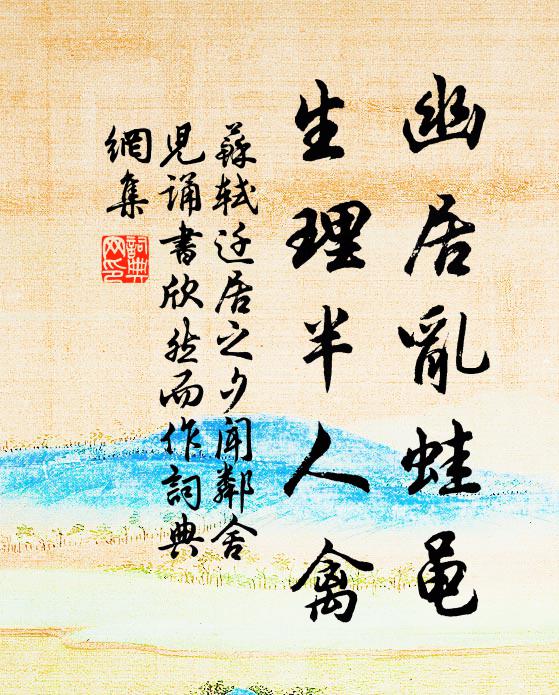 幽居亂蛙黽
生理半人禽
蘇軾迁居之夕聞鄰舍
児誦書欣然而作詞典
網集
詞典
网印